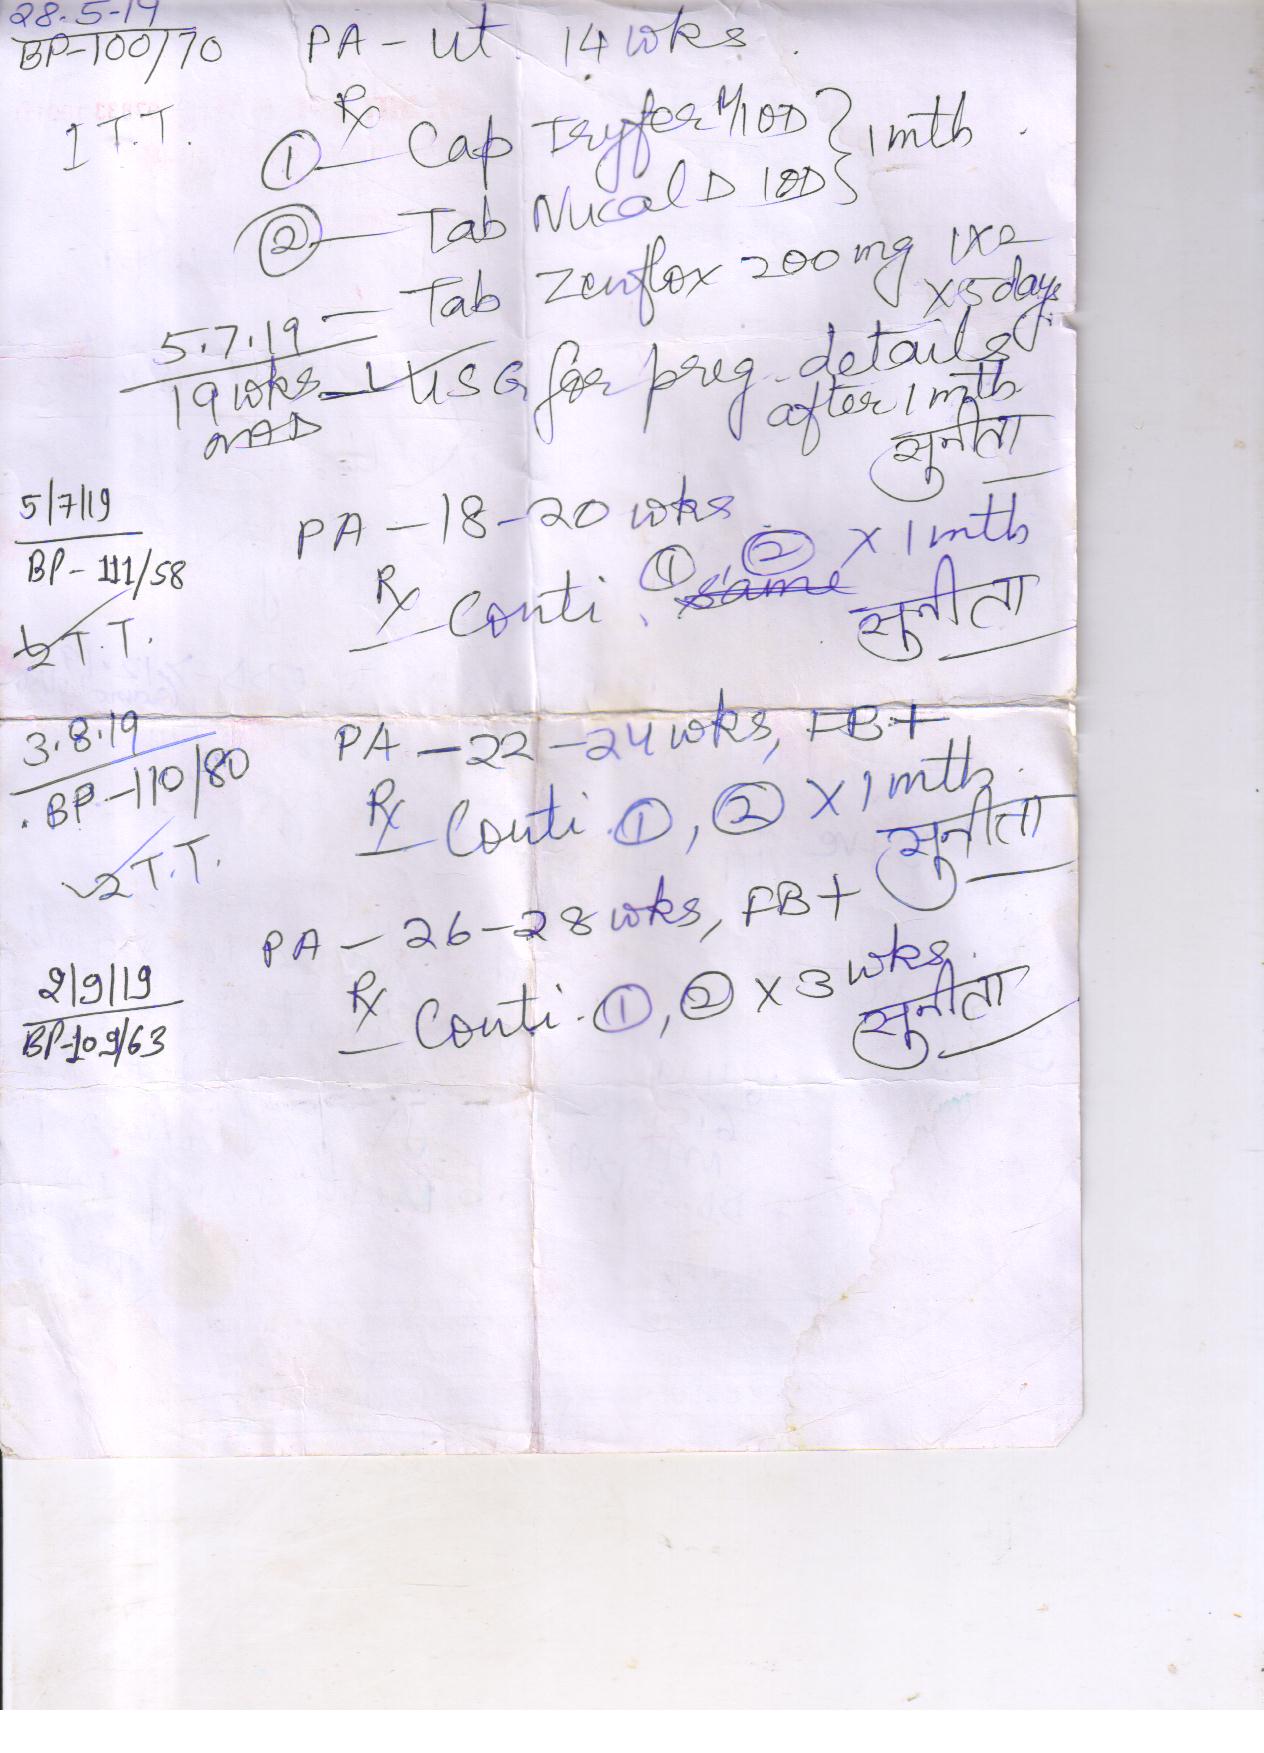 28.5.19
BP-100/70 PA - Ut 14 wks.
I T.T. Rx
① - Cap Tryfer M 1OD } 1 mth.
② - Tab Nucal D 1OD }
- Tab Zenflox 200 mg 1x2
x 5 days
5.7.19 - USG for preg. details
19 wks after 1 mth
NAD सुनीता
5/7/19 PA - 18-20 wks
BP - 111/58 Rx Conti. ① ② x 1 mth
2 T.T. same सुनीता
3.8.19 PA - 22-24 wks, FB+
BP - 110/80 Rx Conti. ①, ② x 1 mth.
2 T.T. सुनीता
PA - 26-28 wks, FB+
2/9/19 Rx Conti. ①, ② x 3 wks.
BP-109/63 सुनीता